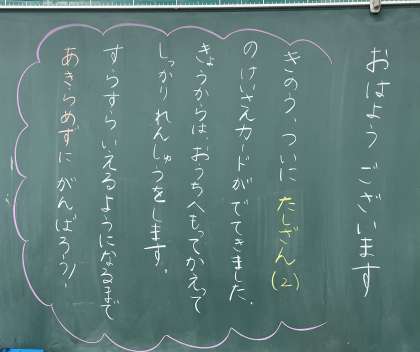 おはようございます
きのう、ついに たしざん(2)
のけいさんカードがでてきました。
きょうからは、おうちへもってかえって
しっかりれんしゅうをします。
すらすらいえるようになるまで
あきらめずにがんばろう!